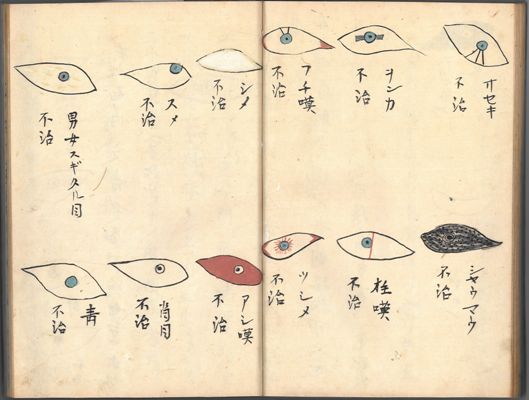 オセキ
不治
ヲンカ
不治
フチ嘆
不治
シメ
不治
スメ
不治
男女スギタル目
不治
シヤウマウ
不治
不治
ツシメ
不治
アシ嘆
不治
肖目
不治
青
不治